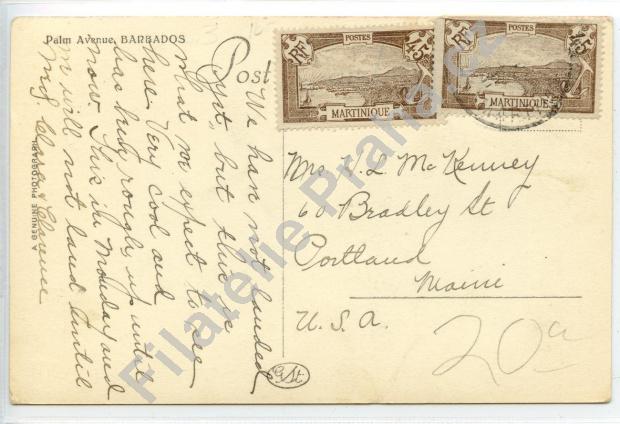 Palm Avenue, BARBADOS
Post
We han not landed
yet, but this is
what we expect to see
here. Very cool and
has been rough, up until
now. This is Monday and
will not land until
Clara & Clarence
A GENUINE PHOTOGRAPH
RF POSTES 45c
MARTINIQUE
RF POSTES 45c
MARTINIQUE
Mrs. V. L. McKenney
60 Bradley St
Portland
Maine
U.S.A.
20
Filatelie Praha.cz